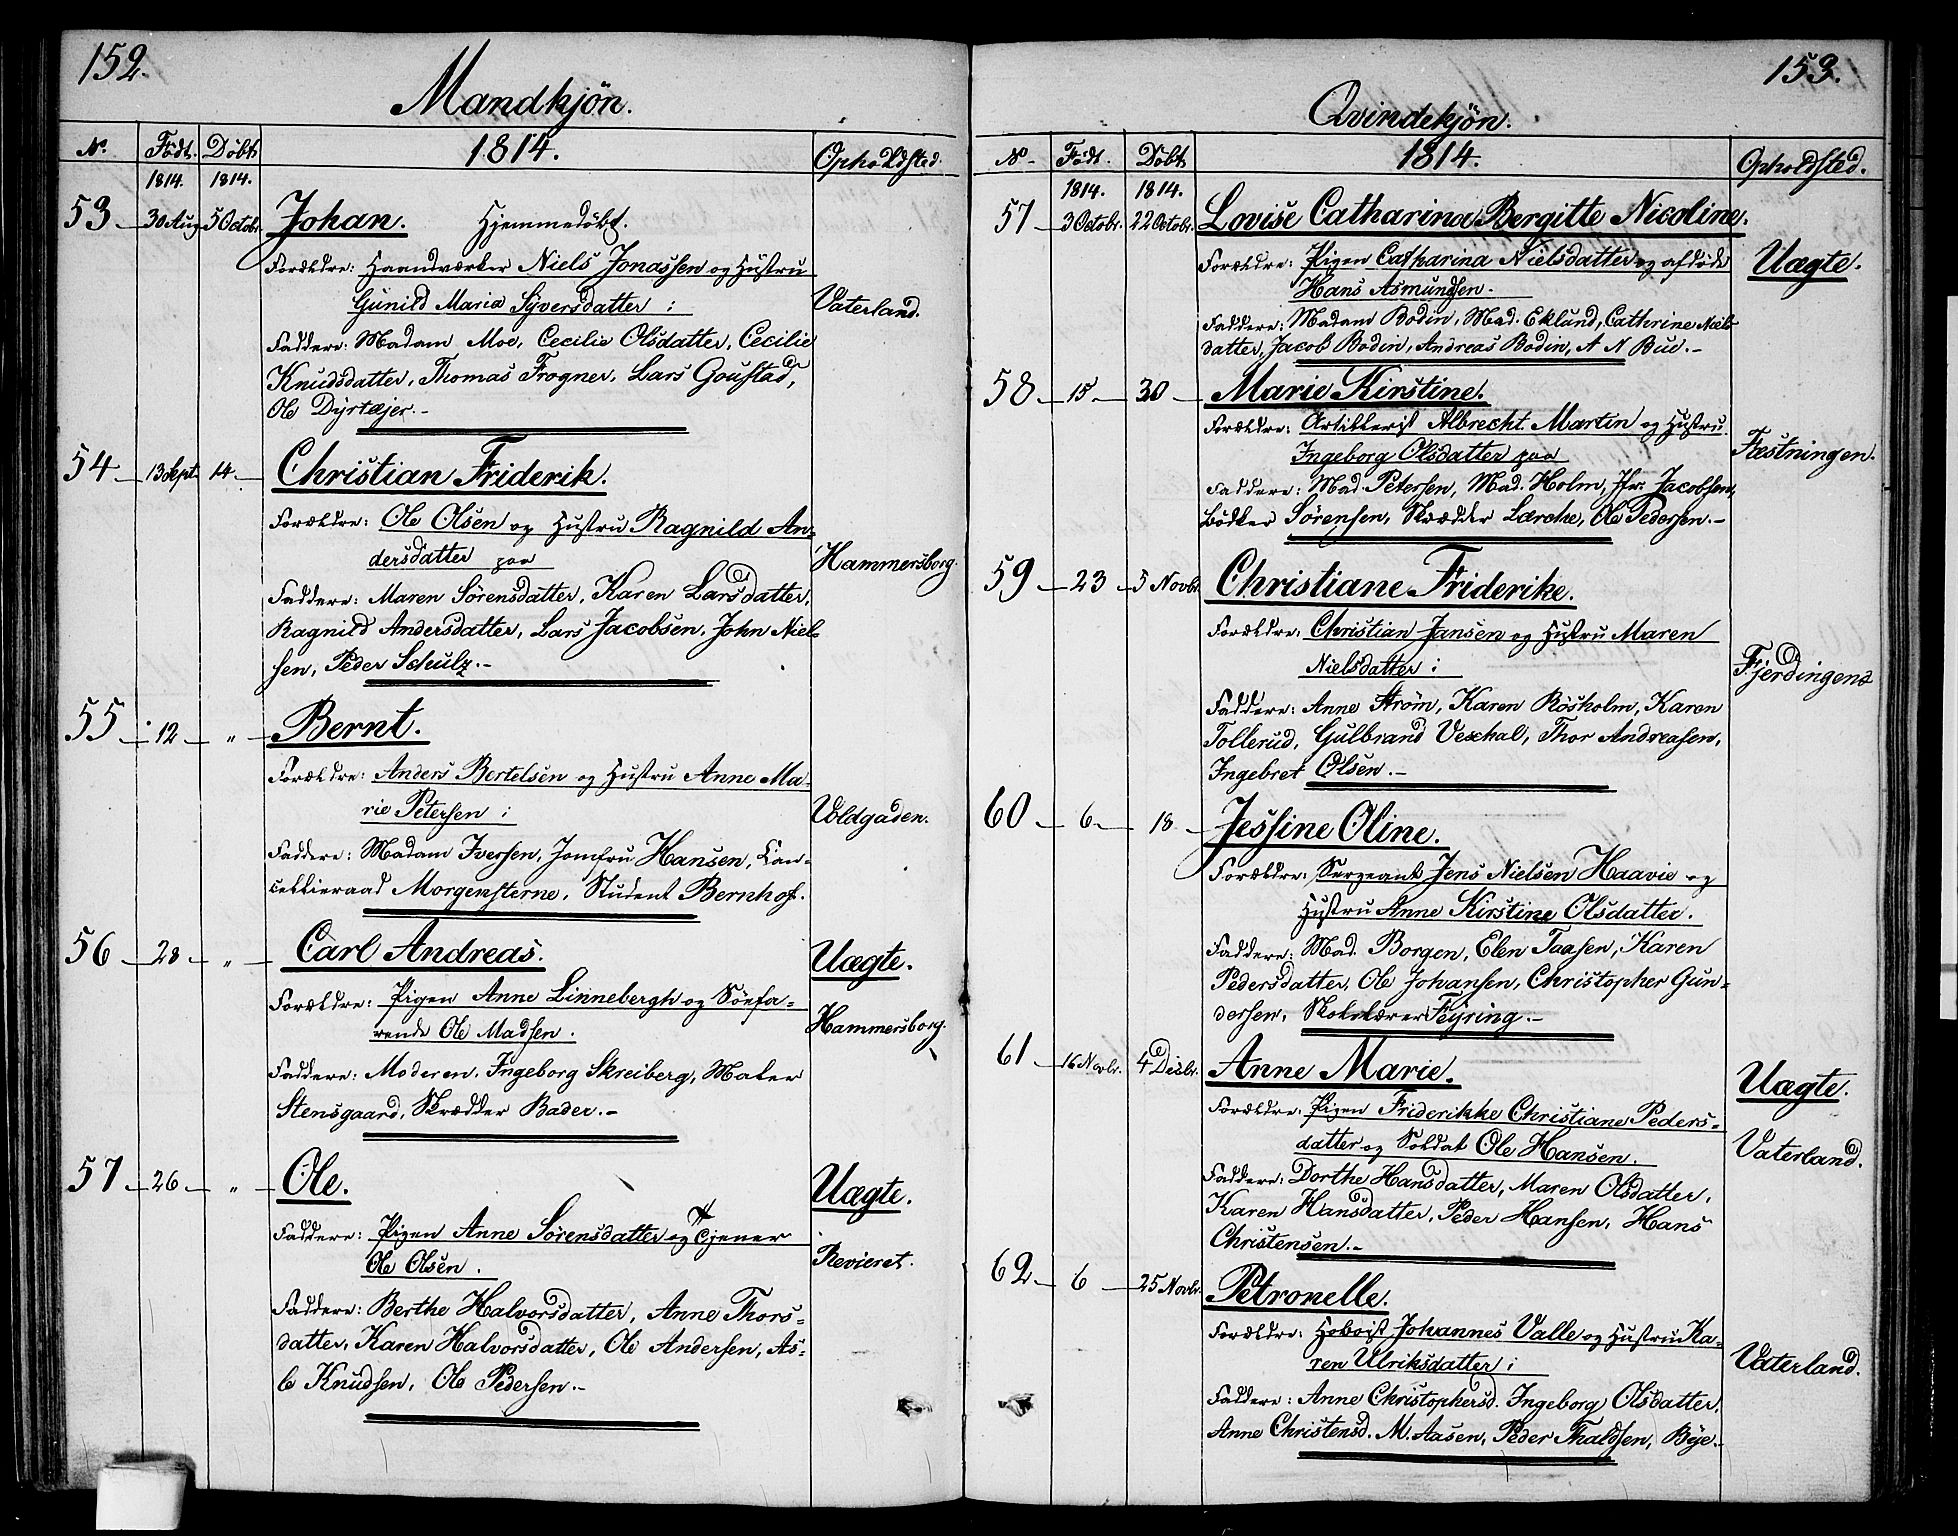 152.
Mandkjön.
N. Födt. Döbt 1814. Opholdsted.
1814. 1814.
53 30 Aug 5 Octobr. Johan. Hjemmedöbt.
Forældre: Haandværker Niels Jonassen og Hustru
Gunild Maria Syversdatter i Vaterland.
Faddere: Madam Moe, Cecilie Olsdatter, Cecilie
Knudsdatter, Thomas Frogner, Lars Goustad,
Ole Dyrtæjer.-
54 13 Sept. 14 Christian Friderik.
Forældre: Ole Olsen og Hustru Ragnild An-
dersdatter paa Hammersborg.
Faddere: Maren Sörensdatter, Karen Larsdatter,
Ragnild Andersdatter, Lars Jacobsen, John Niel-
sen, Peder Schulz.-
55 12 " Bernt.
Forældre: Anders Bertelsen og Hustru Anne Ma-
rie Petersen i Voldgaden.
Faddere: Madam Iversen, Jomfru Hansen, Can-
cellieraad Morgensterne, Student Bernhof.
56 28 " Carl Andreas. Uægte.
Forældre: Pigen Anne Linnebergh og Söefa-
rende Ole Madsen. Hammersborg.
Faddere: Moderen, Ingeborg Skreiberg, Maler
Stensgaard, Skrædder Bader.-
57 26 " Ole. Uægte.
Faddere: Pigen Anne Sörensdatter og Tjener
Ole Olsen. Revieret.
Faddere: Berthe Halvorsdatter, Anne Thors-
datter, Karen Halvorsdatter, Ole Andersen, As-
le Knudsen, Ole Pedersen.-
153.
Qvindekjön.
No. Födt. Döbt 1814. Opholdsted.
1814. 1814.
57 3 Octobr. 22 Octobr. Lovise Catharina Bergitte Nicoline.
Forældre: Pigen Catharina Nielsdatter og afdöde Uægte.
Hans Asmundsen.
Faddere: Madam Bodin, Mad. Eklund, Cathrine Niels-
datter, Jacob Bodin, Andreas Bodin, A N Bue.-
58 15 30 Marie Kirstine.
Forældre: Artillerist Albrecht Martin og Hustru
Ingeborg Olsdatter paa Fæstningen.
Faddere: Mad. Petersen, Mad. Holm, Jfr. Jacobsen,
Bödker Sörensen, Skrædder Lærche, Ole Pedersen.-
59 23 5 Novbr. Christiane Friderike.
Forældre: Christian Jansen og Hustru Maren
Nielsdatter i Fjerdingen
Faddere: Anne Ström, Karen Rösholm, Karen
Tollerud, Gulbrand Vexhal, Thor Andreasen,
Ingebret Olsen.-
60 6 18 Jessine Oline.
Forældre: Sergeant Jens Nielsen Haavie og
Hustru Anne Kirstine Olsdatter.
Faddere: Mad. Borgen, Elen Taasen, Karen
Pedersdatter, Ole Johansen, Christopher Gun-
dersen, Skolelærer Feyring.-
61 16 Novbr. 4 Decbr. Anne Marie. Uægte.
Forældre: Pigen Friderikke Christiane Peders-
datter og Soldat Ole Hansen. Vaterland.
Faddere: Dorthe Hansdatter, Maren Olsdatter,
Karen Hansdatter, Peder Hansen, Hans
Christensen.-
62 6 25 Novbr. Petronelle.
Forældre: Hoboist Johannes Valle og Hustru Ka-
ren Ulriksdatter i Vaterland.
Faddere: Anne Christophersd. Ingeborg Olsdatter,
Anne Christensd. M. Aasen, Peder Thaldsen, Böje.